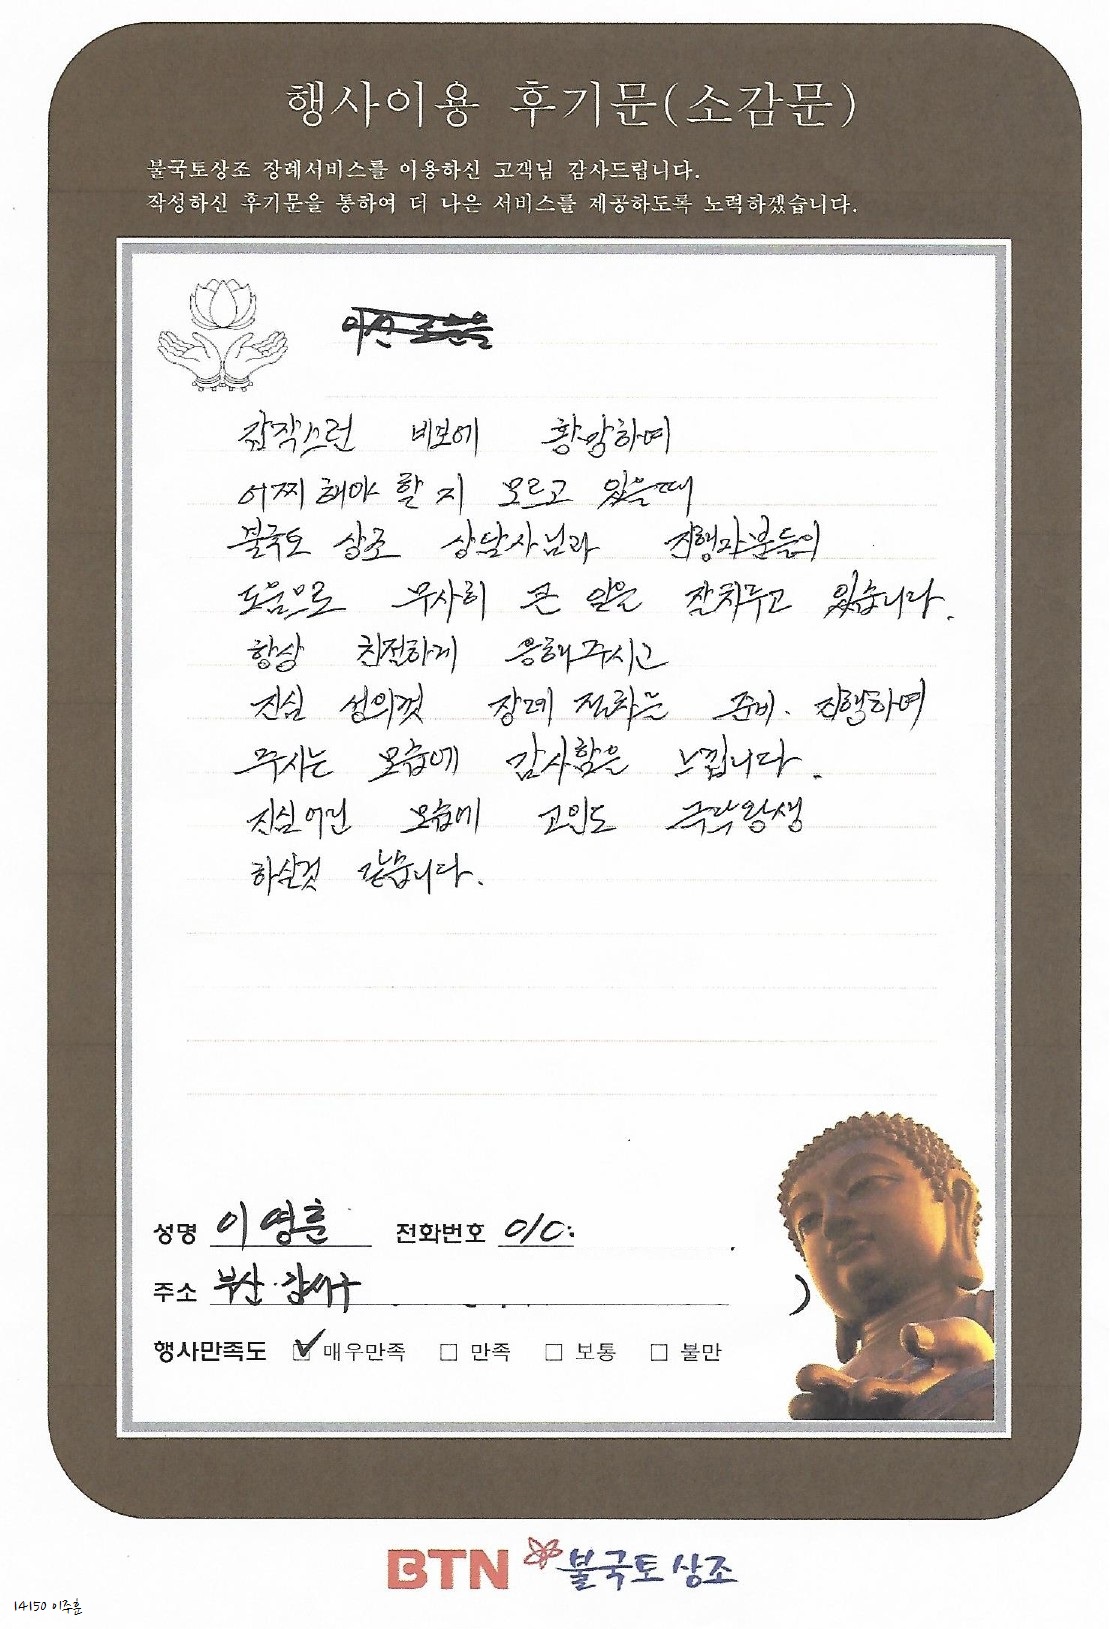 행사이용 후기문(소감문)
불국토상조 장례서비스를 이용하신 고객님 감사드립니다.
작성하신 후기문을 통하여 더 나은 서비스를 제공하도록 노력하겠습니다.
갑작스런 비보에 황망하여
어찌 해야 할 지 모르고 있을때
불국토 상조 상담사님과 진행자분들의
도움으로 무사히 큰 일을 잘치루고 있습니다.
항상 친절하게 응해주시고
진심 성의껏 장례 절차는 준비. 진행하여
주시는 모습에 감사함을 느낍니다.
진심어린 모습에 고인도 극락왕생
하실것 같습니다.
성명 이영훈 전화번호 010:
주소 부산. 강서구
행사만족도 ☑ 매우만족 □ 만족 □ 보통 □ 불만
BTN 불국토상조
14150 이주훈